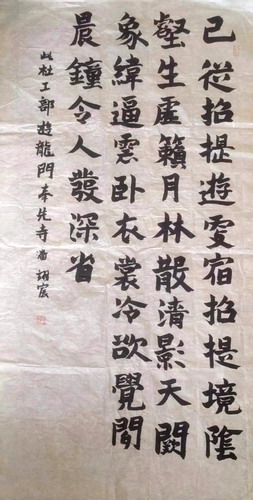 已從招提遊更宿招提境陰
壑生虛籟月林散清影天闕
象緯逼雲卧衣裳冷欲覺聞
晨鐘令人發深省
此杜工部遊龍門奉先寺